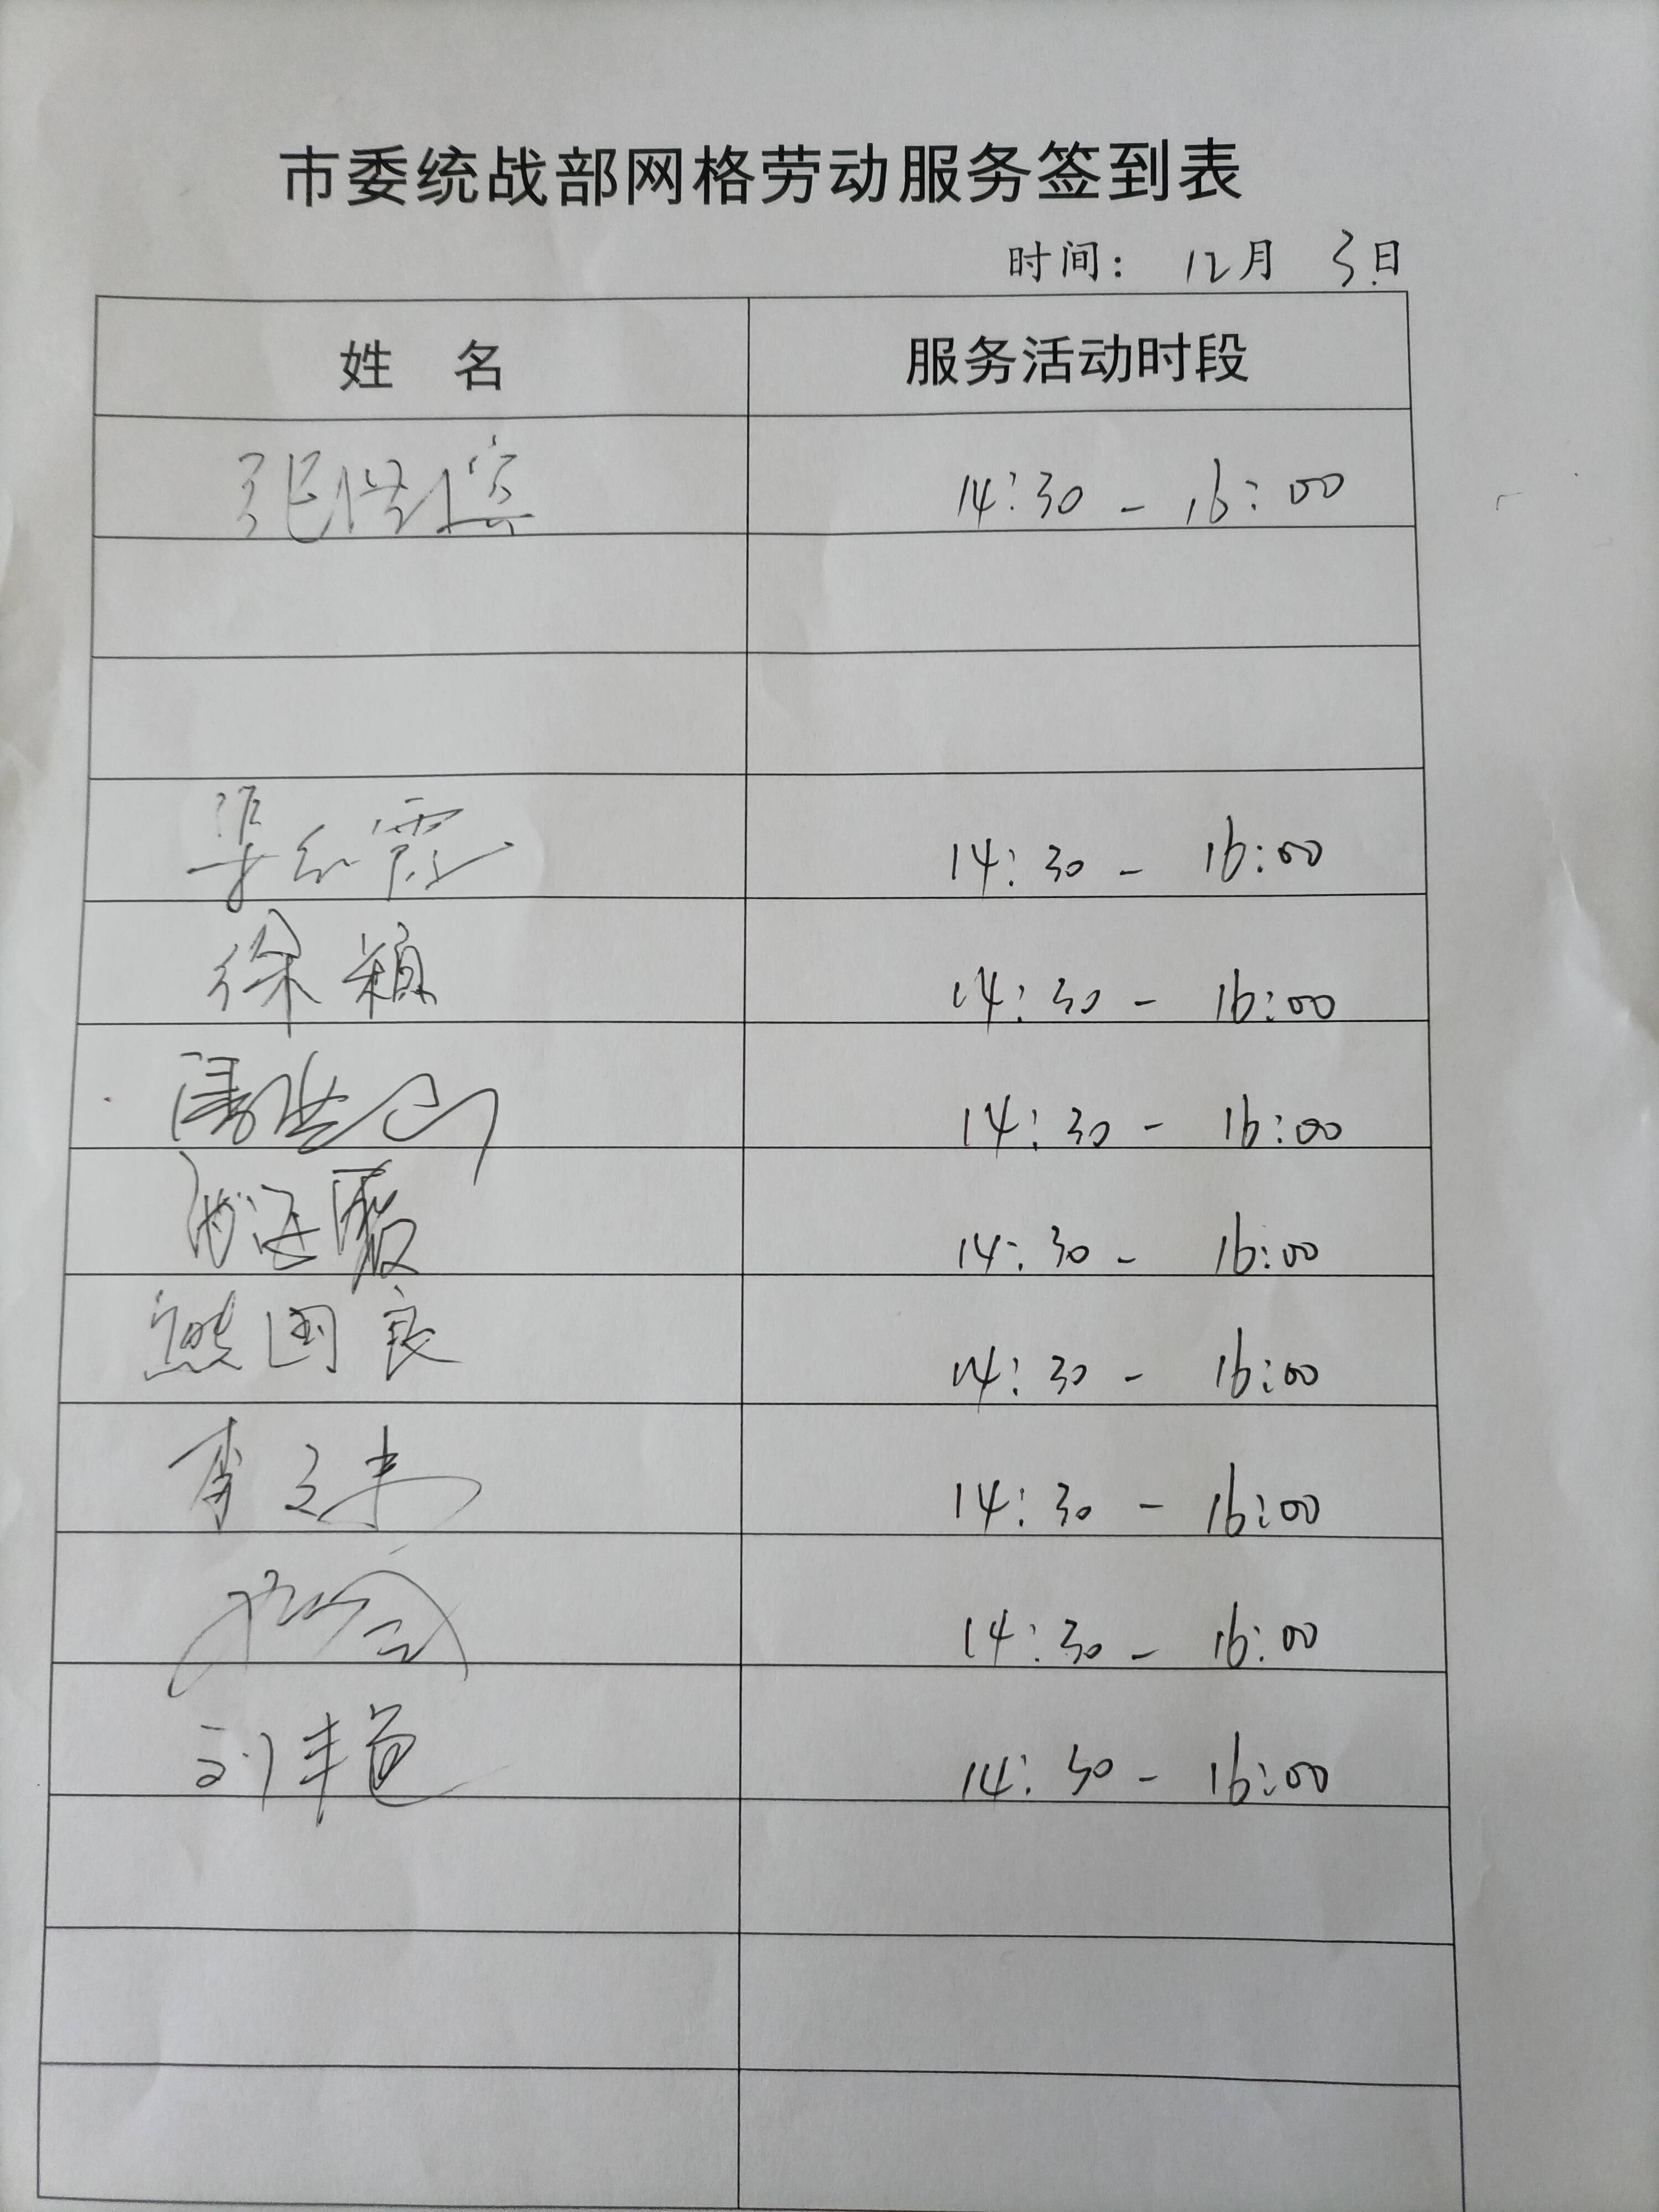 市委统战部网格劳动服务签到表
时间： 12月 3日
姓 名 服务活动时段
14:30 - 16:00
14:30 - 16:00
徐颖 14:30 - 16:00
14:30 - 16:00
14:30 - 16:00
熊国良 14:30 - 16:00
李文丰 14:30 - 16:00
14:30 - 16:00
刘丰道 14:30 - 16:00